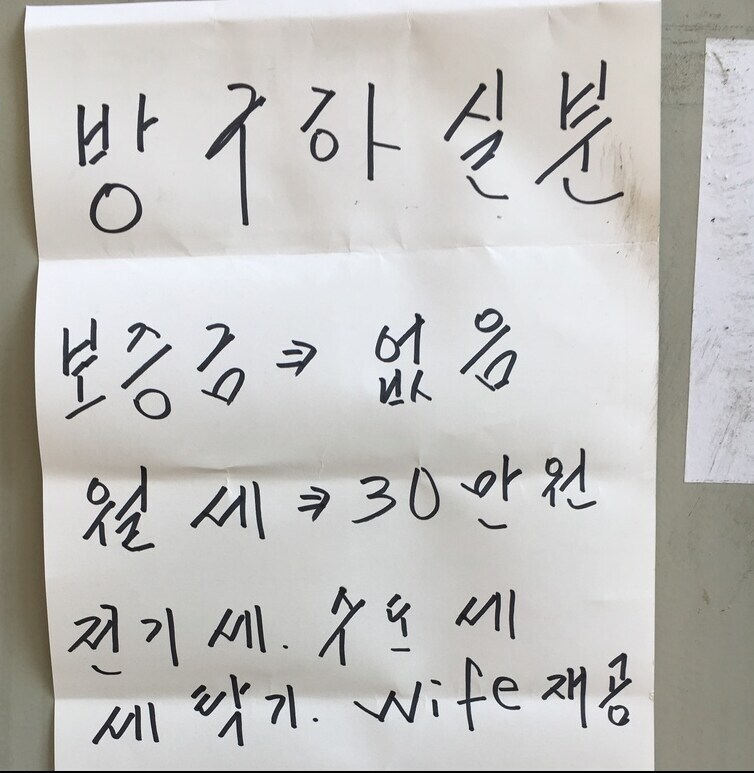 방 구 하 실 분
보증금 ⇒ 없음
월 세 ⇒ 30 만 원
전기 세. 수도 세
세 탁기. Wife 재공